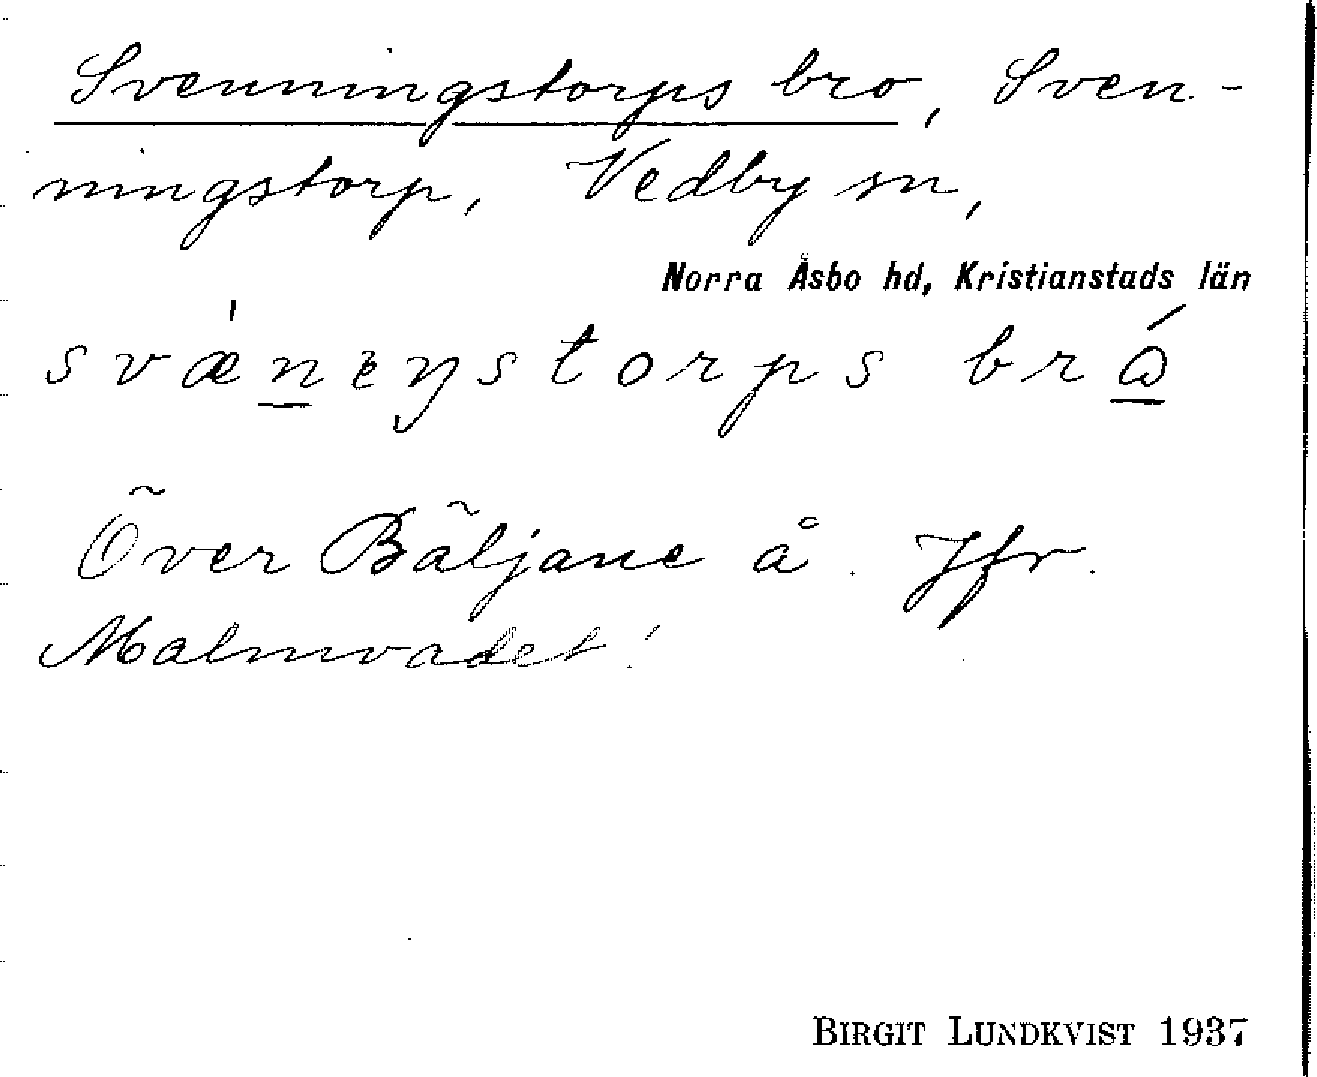 Svenningstorps bro, Sven-
ningstorp, Vedby sn,
Norra Åsbo hd, Kristianstads län
svǽnɛŋstorps brɷ́
Över Bäljane å. Jfr.
Malmvadet!
BIRGIT LUNDKVIST 1937